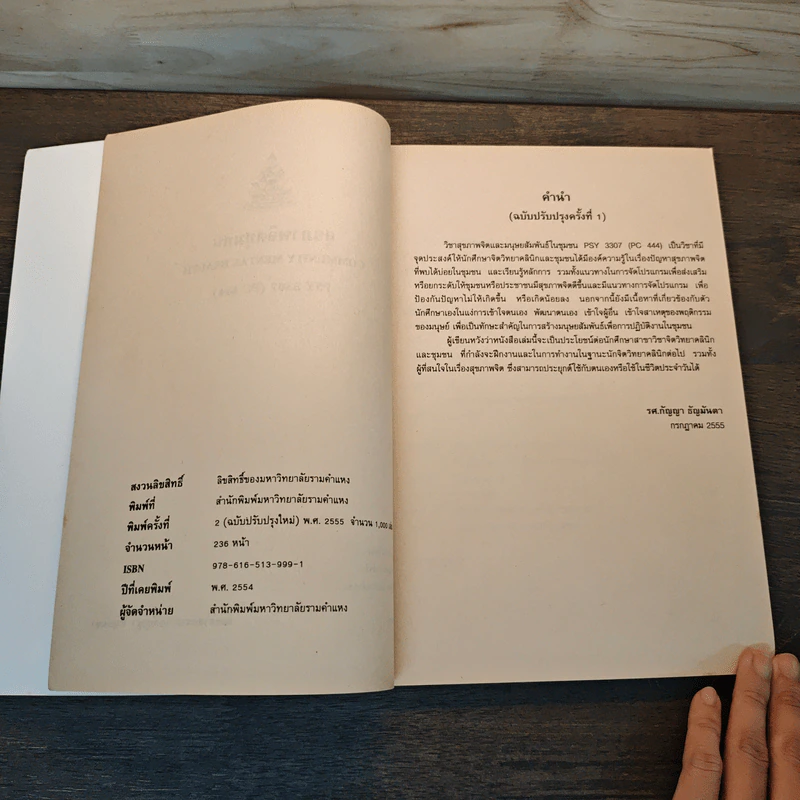 สงวนลิขสิทธิ์ ลิขสิทธิ์ของมหาวิทยาลัยรามคำแหง
พิมพ์ที่ สำนักพิมพ์มหาวิทยาลัยรามคำแหง
พิมพ์ครั้งที่ 2 (ฉบับปรับปรุงใหม่) พ.ศ. 2555 จำนวน 1,000
จำนวนหน้า 236 หน้า
ISBN 978-616-513-999-1
ปีที่เคยพิมพ์ พ.ศ. 2554
ผู้จัดจำหน่าย สำนักพิมพ์มหาวิทยาลัยรามคำแหง
คำนำ
(ฉบับปรับปรุงครั้งที่ 1)
วิชาสุขภาพจิตและมนุษยสัมพันธ์ในชุมชน PSY 3307 (PC 444) เป็นวิชาที่มี
จุดประสงค์ให้นักศึกษาจิตวิทยาคลินิกและชุมชนได้มีองค์ความรู้ในเรื่องปัญหาสุขภาพจิต
ที่พบได้บ่อยในชุมชน และเรียนรู้หลักการ รวมทั้งแนวทางในการจัดโปรแกรมเพื่อส่งเสริม
หรือยกระดับให้ชุมชนหรือประชาชนมีสุขภาพจิตดีขึ้นและมีแนวทางการจัดโปรแกรม เพื่อ
ป้องกันปัญหาไม่ให้เกิดขึ้น หรือเกิดน้อยลง นอกจากนี้ยังมีเนื้อหาที่เกี่ยวข้องกับตัว
นักศึกษาเองในแง่การเข้าใจตนเอง พัฒนาตนเอง เข้าใจผู้อื่น เข้าใจสาเหตุของพฤติกรรม
ของมนุษย์ เพื่อเป็นทักษะสำคัญในการสร้างมนุษยสัมพันธ์เพื่อการปฏิบัติงานในชุมชน
ผู้เขียนหวังว่าหนังสือเล่มนี้จะเป็นประโยชน์ต่อนักศึกษาสาขาวิชาจิตวิทยาคลินิก
และชุมชน ที่กำลังจะฝึกงานและในการทำงานในฐานะนักจิตวิทยาคลินิกต่อไป รวมทั้ง
ผู้ที่สนใจในเรื่องสุขภาพจิต ซึ่งสามารถประยุกต์ใช้กับตนเองหรือใช้ในชีวิตประจำวันได้
รศ.กัญญา ธัญมันตา
กรกฎาคม 2555